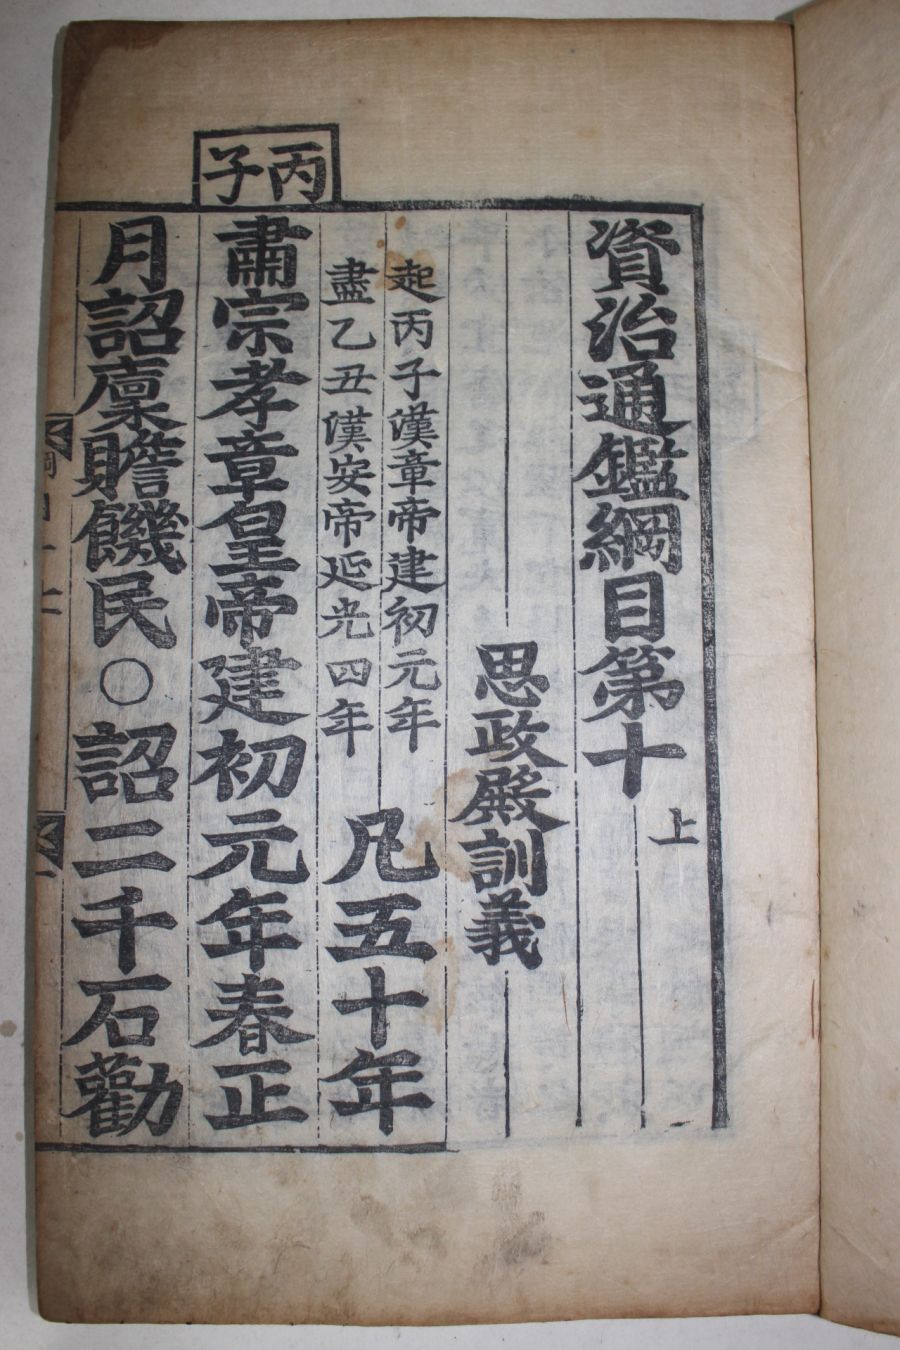 資治通鑑綱目第十上
思政殿訓義
起丙子漢章帝建初元年
盡乙丑漢安帝延光四年
凡五十年
丙子
肅宗孝章皇帝建初元年春正
月詔稟贍饑民○詔二千石勸